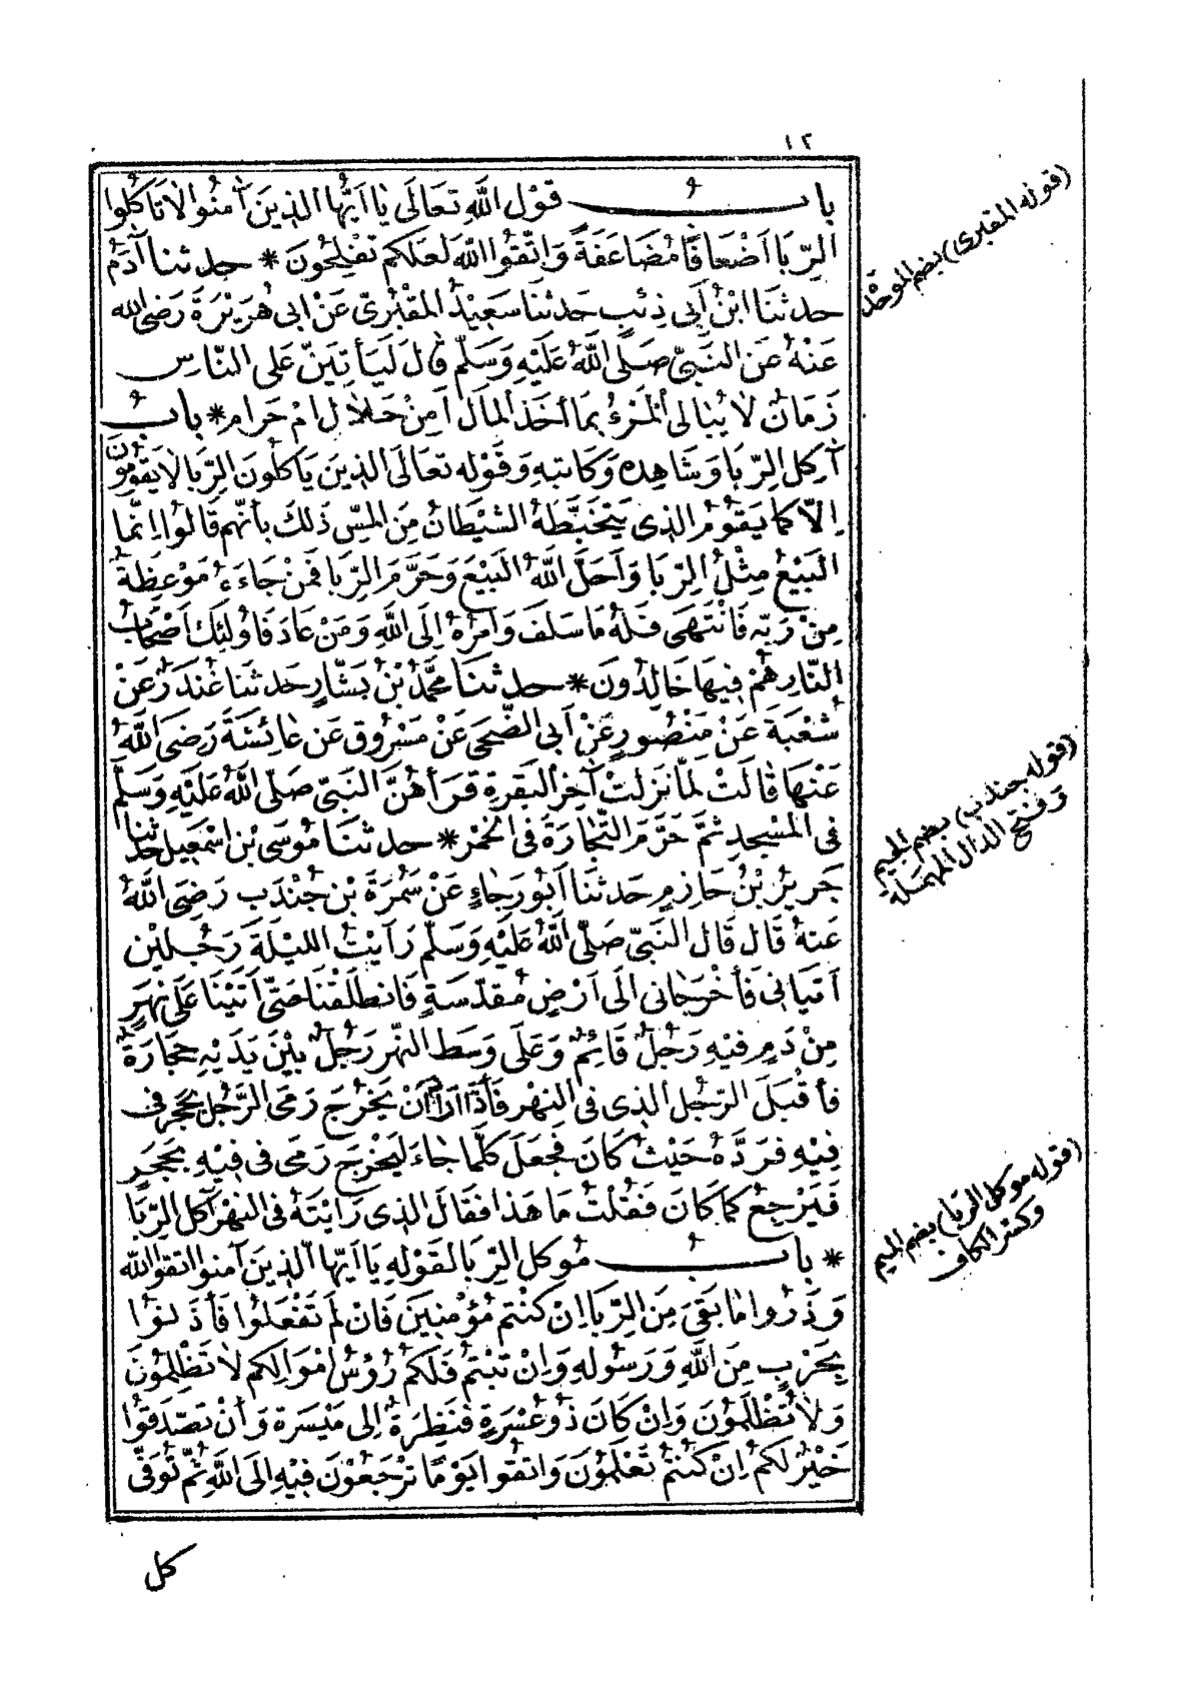 ١٢
بابُ قَوْلِ اللَّهِ تَعَالَى يَا أَيُّهَا الَّذِينَ آمَنُوا لَا تَأْكُلُوا
الرِّبَا أَضْعَافًا مُضَاعَفَةً وَاتَّقُوا اللَّهَ لَعَلَّكُمْ تُفْلِحُونَ * حدثنا آدَمُ
حدثنَا ابْنُ أَبِي ذِئْبٍ حَدثنَا سَعِيْدُ المَقْبُرِىّ عَنْ ابى هُرَيْرَةَ رَضِىَ الله
عَنْهُ عَنِ النَّبِىِّ صَلَّى اللَّهُ عَلَيْهِ وَسَلَّمَ قَالَ لَيَأْتِيَنَّ عَلَى النَّاسِ
زَمَانٌ لَا يُبَالِى الْمَرْءُ بِمَا أَخَذَ الْمَالَ أَمِنْ حَلَالٍ أَمْ حَرَامٍ * بابُ
آكِلِ الرِّبَا وَشَاهِدِهِ وَكَاتِبِهِ وَقَوْلِهِ تَعَالَى الَّذِينَ يَأْكُلُونَ الرِّبَا لَا يَقُومُونَ
إِلَّا كَمَا يَقُومُ الَّذِى يَتَخَبَّطُهُ الشَّيْطَانُ مِنَ الْمَسِّ ذَلِكَ بِأَنَّهُمْ قَالُوا إِنَّمَا
الْبَيْعُ مِثْلُ الرِّبَا وَأَحَلَّ اللَّهُ الْبَيْعَ وَحَرَّمَ الرِّبَا فَمَنْ جَاءَهُ مَوْعِظَةٌ
مِنْ رَبِّهِ فَانْتَهَى فَلَهُ مَا سَلَفَ وَأَمْرُهُ إِلَى اللَّهِ وَمَنْ عَادَ فَأُولَئِكَ أَصْحَابُ
النَّارِ هُمْ فِيهَا خَالِدُونَ * حدثنَا مُحَمَّدُ بْنُ بَشَّارٍ حَدثنَا غُنْدَرٌ عَنْ
شُعْبَةَ عَنْ مَنْصُورٍ عَنْ أَبِى الضُّحَى عَنْ مَسْرُوقٍ عَنْ عَائِشَةَ رَضِىَ اللَّهُ
عَنْهَا قَالَتْ لَمَّا نَزَلَتْ آخِرُ الْبَقَرَةِ قَرَأَهُنَّ النَّبِىُّ صَلَّى اللَّهُ عَلَيْهِ وَسَلَّمَ
فِى الْمَسْجِدِ ثُمَّ حَرَّمَ التِّجَارَةَ فِى الْخَمْرِ * حدثنَا مُوسَى بْنُ اسْمَعِيلَ حدثنا
جَرِيرُ بْنُ حَازِمٍ حَدثنَا أَبُو رَجَاءٍ عَنْ سَمُرَةَ بْنِ جُنْدَبٍ رَضِىَ اللَّهُ
عَنهُ قَالَ قَالَ النَّبِىُّ صَلَّى اللَّهُ عَلَيْهِ وَسَلَّمَ رَأَيْتُ اللَّيْلَةَ رَجُلَيْنِ
أَتَيَانِى فَأَخْرَجَانِى إِلَى أَرْضٍ مُقَدَّسَةٍ فَانْطَلَقْنَا حَتَّى أَتَيْنَا عَلَى نَهَرٍ
مِنْ دَمٍ فِيْهِ رَجُلٌ قَائِمٌ وَعَلَى وَسَطِ النَّهَرِ رَجُلٌ بَيْنَ يَدَيْهِ حِجَارَةٌ
فَأَقْبَلَ الرَّجُلُ الَّذِى فِى النَّهَرِ فَإِذَا أَرَادَ أَنْ يَخْرُجَ رَمَى الرَّجُلُ بِحَجَرٍ فِى
فِيْهِ فَرَدَّهُ حَيْثُ كَانَ فَجَعَلَ كُلَّمَا جَاءَ لِيَخْرُجَ رَمَى فِى فِيْهِ بِحَجَرٍ
فَيَرْجِعُ كَمَا كَانَ فَقُلْتُ مَا هَذَا فَقَالَ الَّذِى رَأَيْتَهُ فِى النَّهَرِ آكِلُ الرِّبَا
* بابُ مُوكِلِ الرِّبَا لِقَوْلِهِ يَا أَيُّهَا الَّذِينَ آمَنُوا اتَّقُوا اللَّهَ
وَذَرُوا مَا بَقِىَ مِنَ الرِّبَا إِنْ كُنْتُمْ مُؤْمِنِينَ فَإِنْ لَمْ تَفْعَلُوا فَأْذَنُوا
بِحَرْبٍ مِنَ اللَّهِ وَرَسُولِهِ وَإِنْ تُبْتُمْ فَلَكُمْ رُؤُسُ أَمْوَالِكُمْ لَا تَظْلِمُونَ
وَلَا تُظْلَمُونَ وَإِنْ كَانَ ذُو عُسْرَةٍ فَنَظِرَةٌ إِلَى مَيْسَرَةٍ وَأَنْ تَصَّدَّقُوا
خَيْرٌ لَكُمْ إِنْ كُنْتُمْ تَعْلَمُونَ وَاتَّقُوا يَوْمًا تُرْجَعُونَ فِيْهِ إِلَى اللَّهِ ثُمَّ تُوَفَّى
كل
(قوله المقبرى) بضم الموحدة
(قوله جندب) بضم الجيم
وفتح الدال المهملة
(قوله موكل الربا) بضم الميم
وكسر الكاف